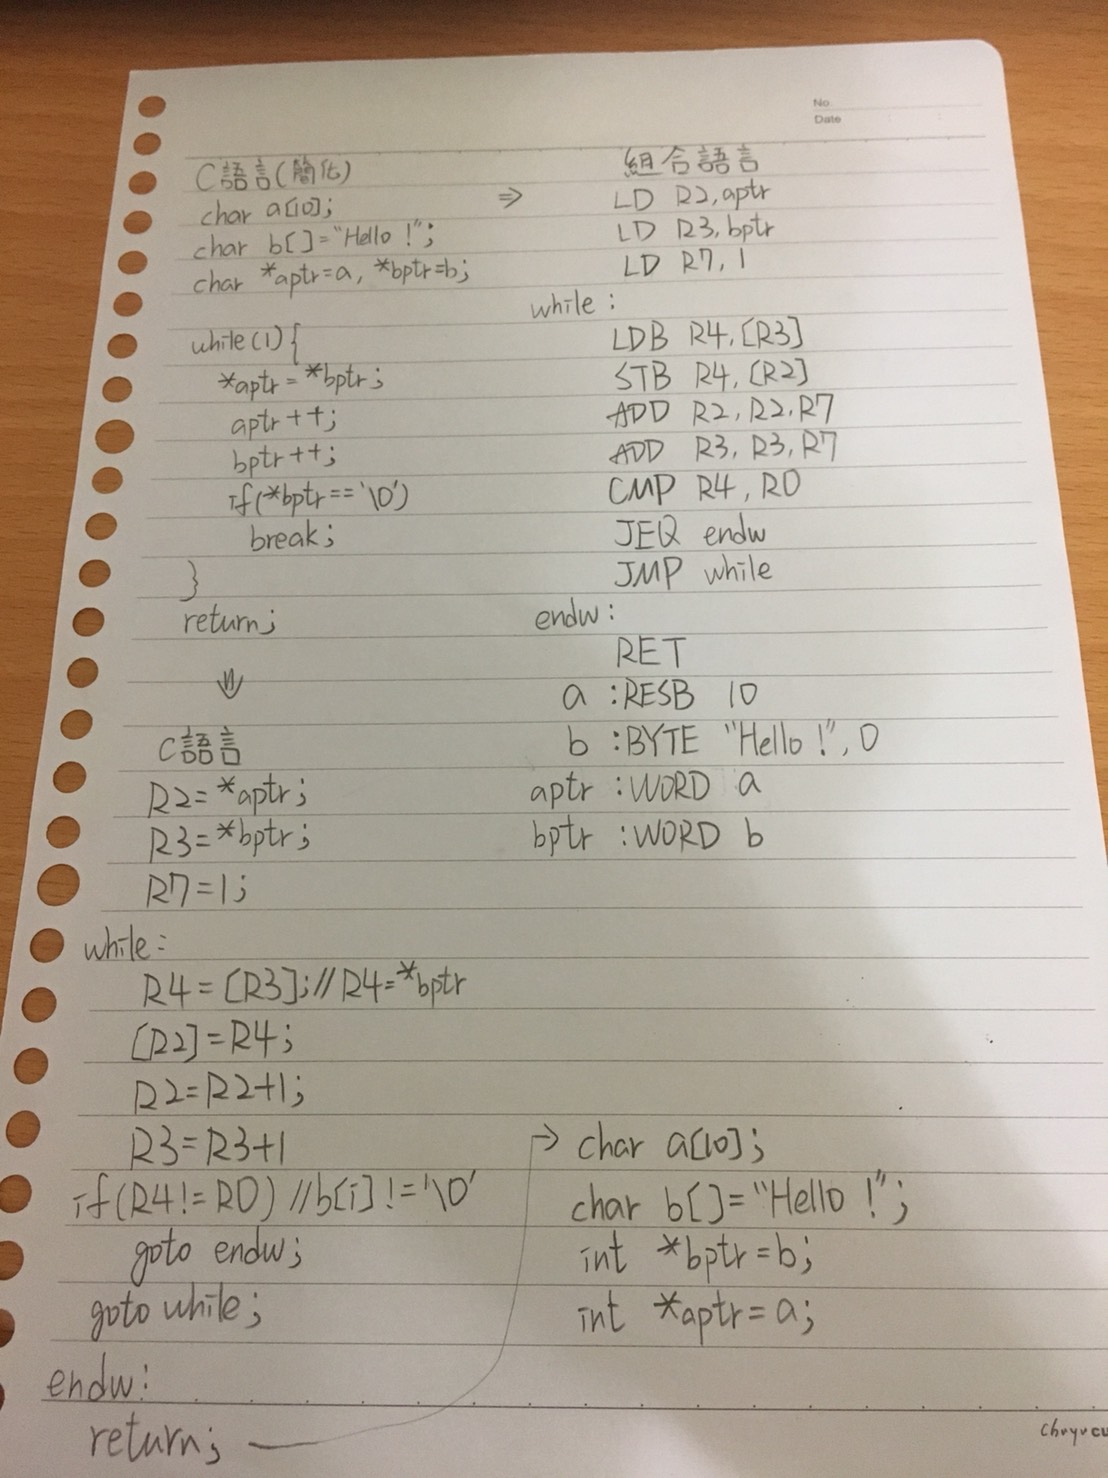 No.
Date
C語言(簡化)
char a[10];
char b[]="Hello !";
char *aptr=a, *bptr=b;
while(1){
*aptr=*bptr;
aptr++;
bptr++;
if(*bptr=='\0')
break;
}
return;
⇓
C語言
R2=*aptr;
R3=*bptr;
R7=1;
while:
R4=[R3];//R4=*bptr
[R2]=R4;
R2=R2+1;
R3=R3+1
if(R4!=R0) //b[i]!='\0'
goto endw;
goto while;
endw:
return;
⇒
組合語言
LD R2,aptr
LD R3,bptr
LD R7,1
while:
LDB R4,[R3]
STB R4,[R2]
ADD R2,R2,R7
ADD R3,R3,R7
CMP R4,R0
JEQ endw
JMP while
endw:
RET
a :RESB 10
b :BYTE "Hello !",0
aptr :WORD a
bptr :WORD b
→ char a[10];
char b[]="Hello !";
int *bptr=b;
int *aptr=a;